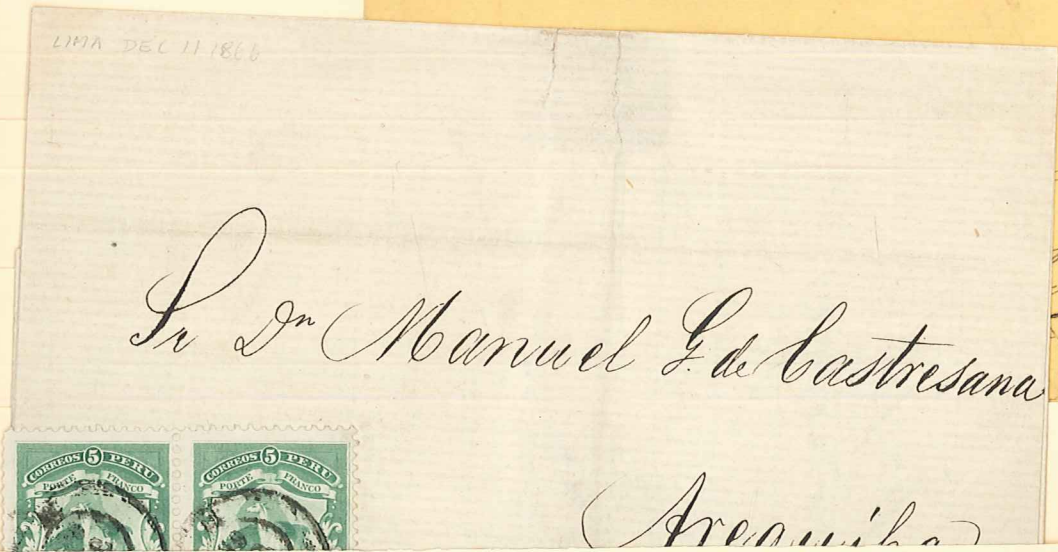 LIMA DEC 11 1866
Sr Dn Manuel G. de Castresana
Arequipa
CORREOS 5 PERU
PORTE FRANCO
CORREOS 5 PERU
PORTE FRANCO